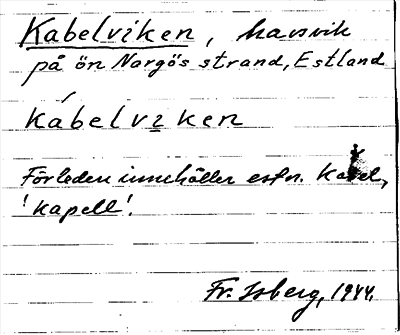 Kabelviken, havsvik
på ön Nargös strand, Estland
Kábelviken
Förleden innehåller estn. Kabel,
'Kapell'.
Fr. Isberg, 1944.